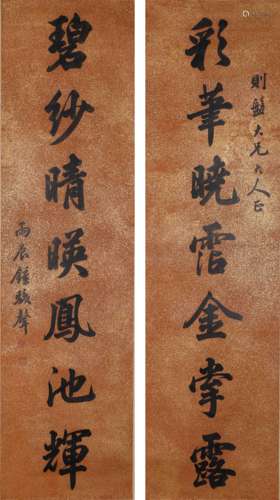 則大兄大人正
彩筆曉霑金掌露
碧紗晴暎鳳池輝
丙辰鍾駿聲